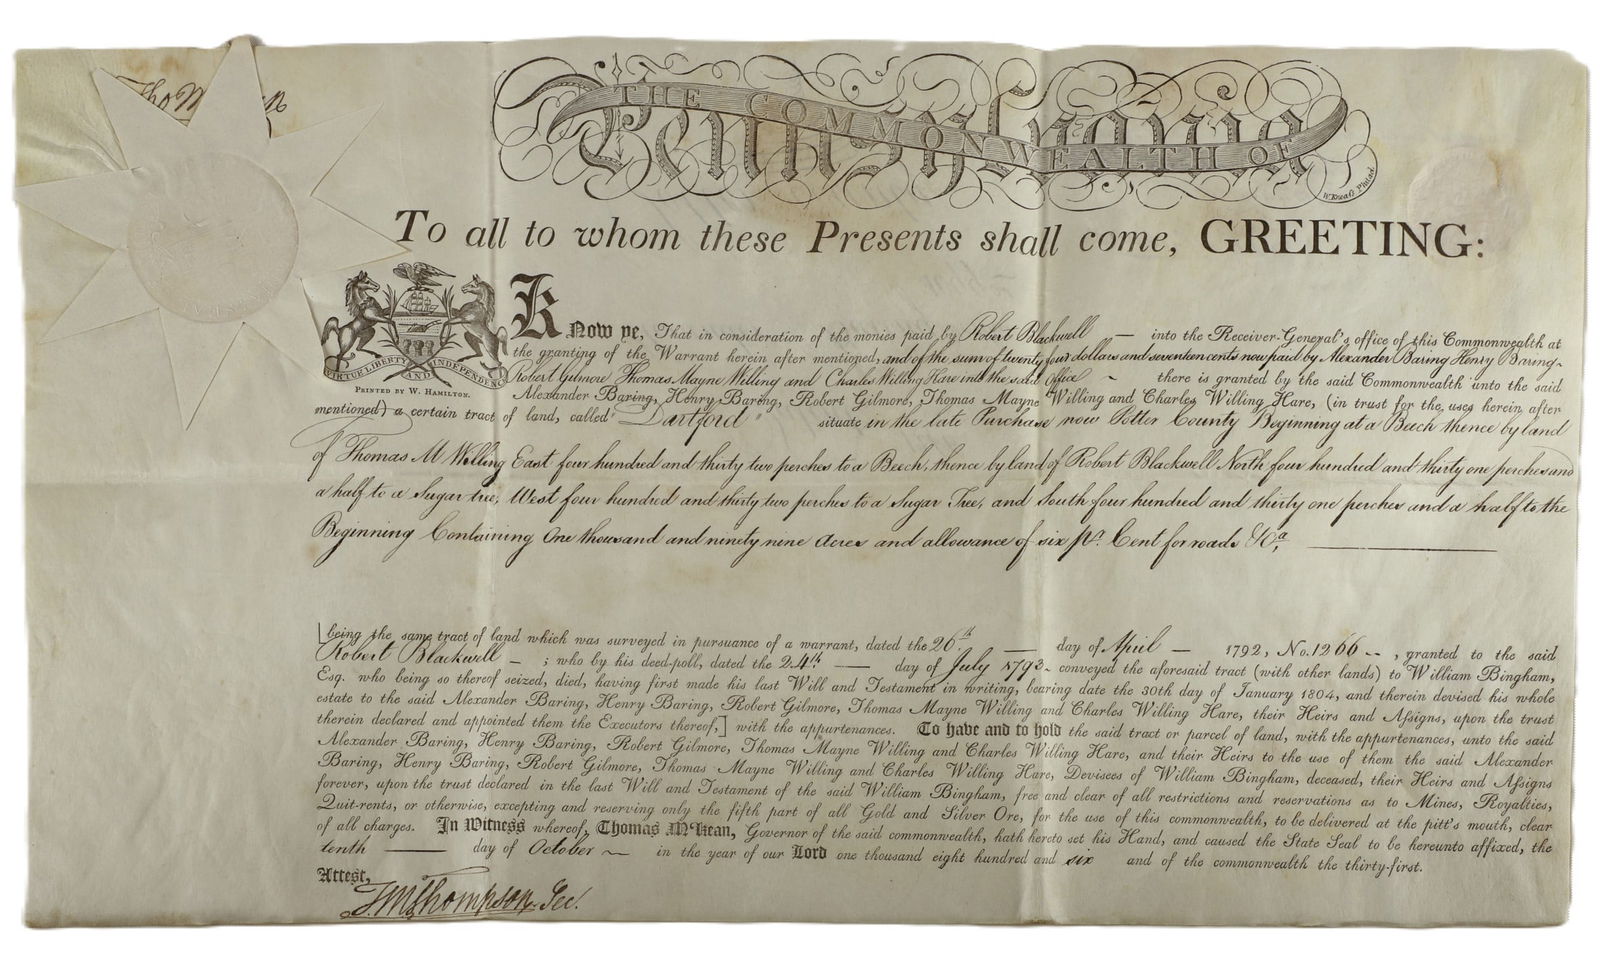 Tho M
THE COMMONWEALTH OF
Pennsylvania
W. Kneass Philad.
To all to whom these Presents shall come, GREETING:
VIRTUE LIBERTY AND INDEPENDENCE
PRINTED BY W. HAMILTON.
Know ye, That in consideration of the monies paid by Robert Blackwell — into the Receiver-General's office of this Commonwealth at
the granting of the Warrant herein after mentioned, and of the sum of twenty four dollars and seventeen cents now paid by Alexander Baring Henry Baring
Robert Gilmore Thomas Mayne Willing and Charles Willing Hare into the said Office ~ there is granted by the said Commonwealth unto the said
Alexander Baring, Henry Baring, Robert Gilmore, Thomas Mayne Willing and Charles Willing Hare, (in trust for the uses herein after
mentioned) a certain tract of land, called "Dartford" situate in the late Purchase now Potter County Beginning at a Beech thence by land
of Thomas M Willing East four hundred and thirty two perches to a Beech, thence by land of Robert Blackwell North four hundred and thirty one perches and
a half to a Sugar tree, West four hundred and thirty two perches to a Sugar Tree, and South four hundred and thirty one perches and a half to the
Beginning Containing One thousand and ninety nine Acres and allowance of six pr. Cent for roads &ca. —
[being the same tract of land which was surveyed in pursuance of a warrant, dated the 26th — day of April — 1792, No. 1266 --, granted to the said
Robert Blackwell – ; who by his deed-poll, dated the 24th — day of July 1793 conveyed the aforesaid tract (with other lands) to William Bingham,
Esq. who being so thereof seized, died, having first made his last Will and Testament in writing, bearing date the 30th day of January 1804, and therein devised his whole
estate to the said Alexander Baring, Henry Baring, Robert Gilmore, Thomas Mayne Willing and Charles Willing Hare, their Heirs and Assigns, upon the trust
therein declared and appointed them the Executors thereof,] with the appurtenances. To have and to hold the said tract or parcel of land, with the appurtenances, unto the said
Alexander Baring, Henry Baring, Robert Gilmore, Thomas Mayne Willing and Charles Willing Hare, and their Heirs to the use of them the said Alexander
Baring, Henry Baring, Robert Gilmore, Thomas Mayne Willing and Charles Willing Hare, Devisees of William Bingham, deceased, their Heirs and Assigns
forever, upon the trust declared in the last Will and Testament of the said William Bingham, free and clear of all restrictions and reservations as to Mines, Royalties,
Quit-rents, or otherwise, excepting and reserving only the fifth part of all Gold and Silver Ore, for the use of this commonwealth, to be delivered at the pitt's mouth, clear
of all charges. In Witness whereof, Thomas M'Kean, Governor of the said commonwealth, hath hereto set his Hand, and caused the State Seal to be hereunto affixed, the
tenth — day of October ~ in the year of our Lord one thousand eight hundred and six and of the commonwealth the thirty-first.
Attest,
T. M. Thompson Sec.